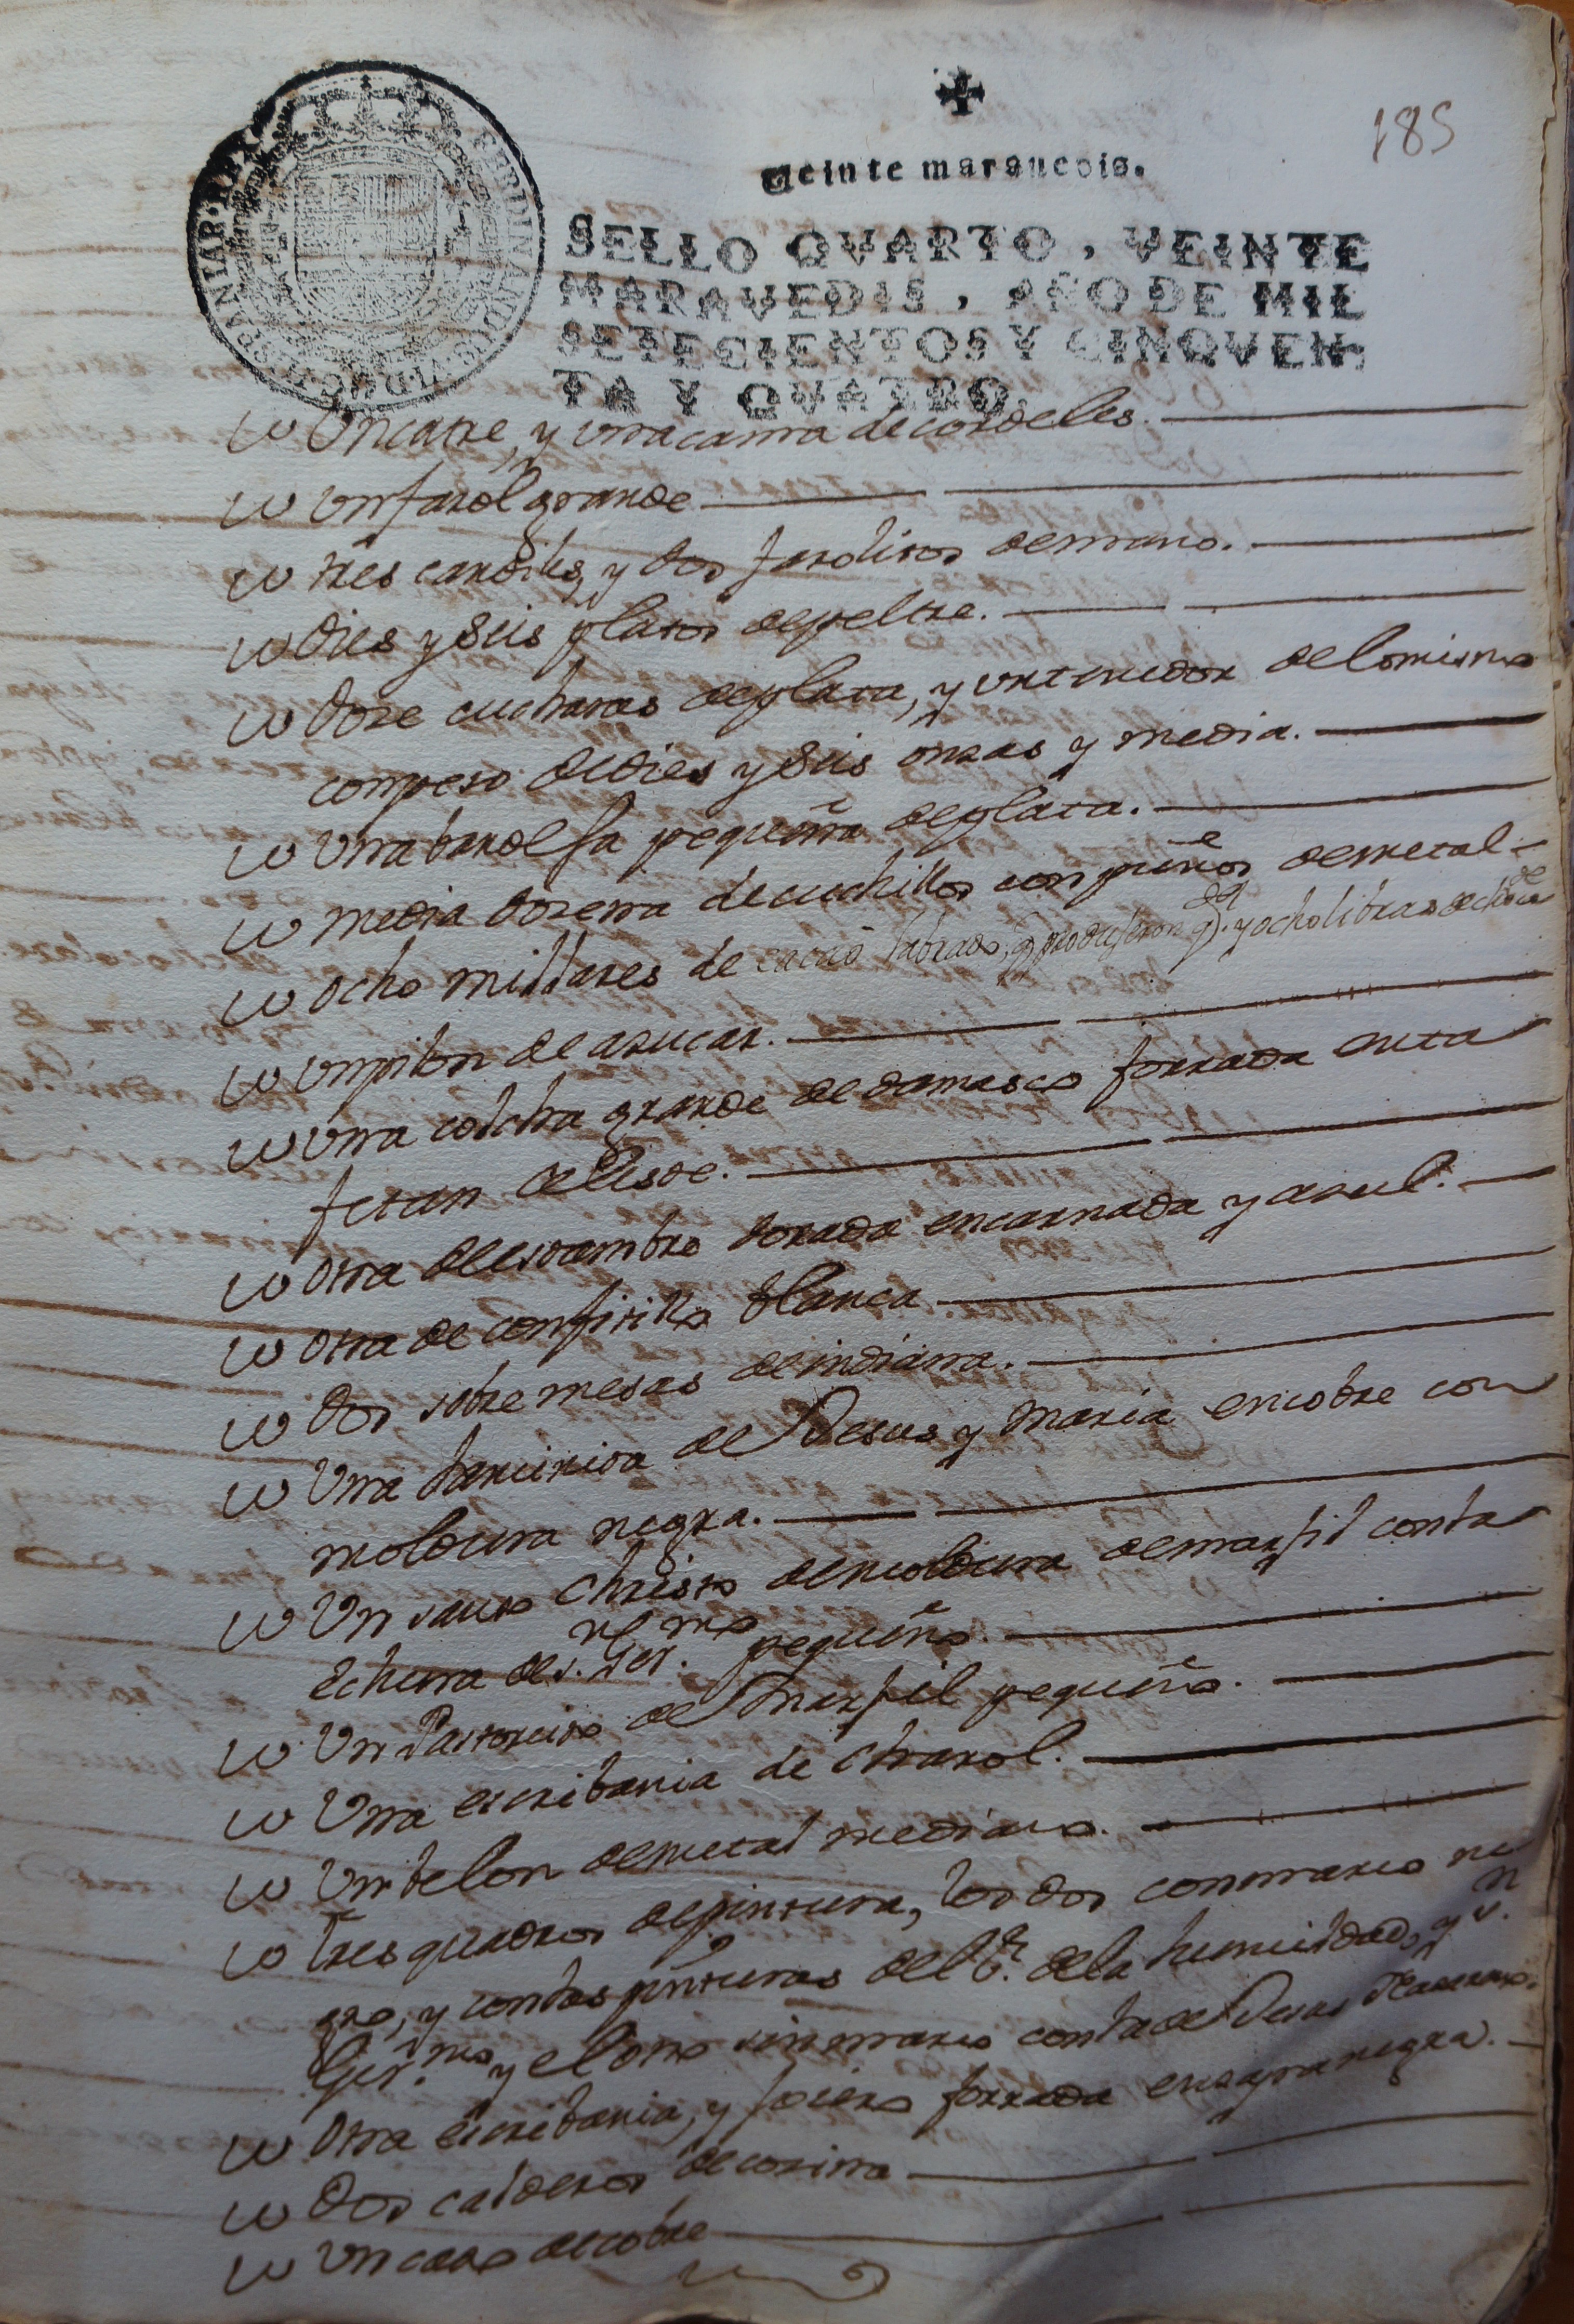 185
Veinte maravedis.
SELLO QVARTO, VEINTE
MARAVEDIS, AÑO DE MIL
SETECIENTOS Y CINQVEN-
TA Y QVATRO.
HISPANIAR·REX
FERDINANDUS·VI·D·G·
Un catre, y una cama de cordeles.
Un farol grande
tres candiles, y dos farolitos de mano.
Dies y seis platos de peltre.
Doze cucharas de plata, y un tenedor de lo mismo
con peso de dies y seis onzas y media.
Una bandeja pequeña de plata.
media dozena de cuchillos con puños de metal
ocho millares de cacao labrado, q produjeron y ocho libras de
Un pilon de azucar.
Una colcha grande de damasco forrada en ta
fetan verde.
Otra de estambre dorada encarnada y azul.
Otra de confitillo blanca
Dos sobre mesas de indiana.
Una laminita de Jesus y Maria en cobre con
moldura negra.
Un santo Christo de moldura de marfil con la
echura de S. Ger.mo pequeño.
Un Pastorcito de Marfil pequeño.
Una escribania de charol.
Un belon de metal mediano.
tres quadros de pintura, los dos con marco ne
gro, y con las pinturas del S.r de la humildad, y S.n
Ger.mo y el otro sin marco con la de Jesus Nazareno.
Otra escribania, y forrada en negra.
Dos calderos de cozina
Un cazo de cobre